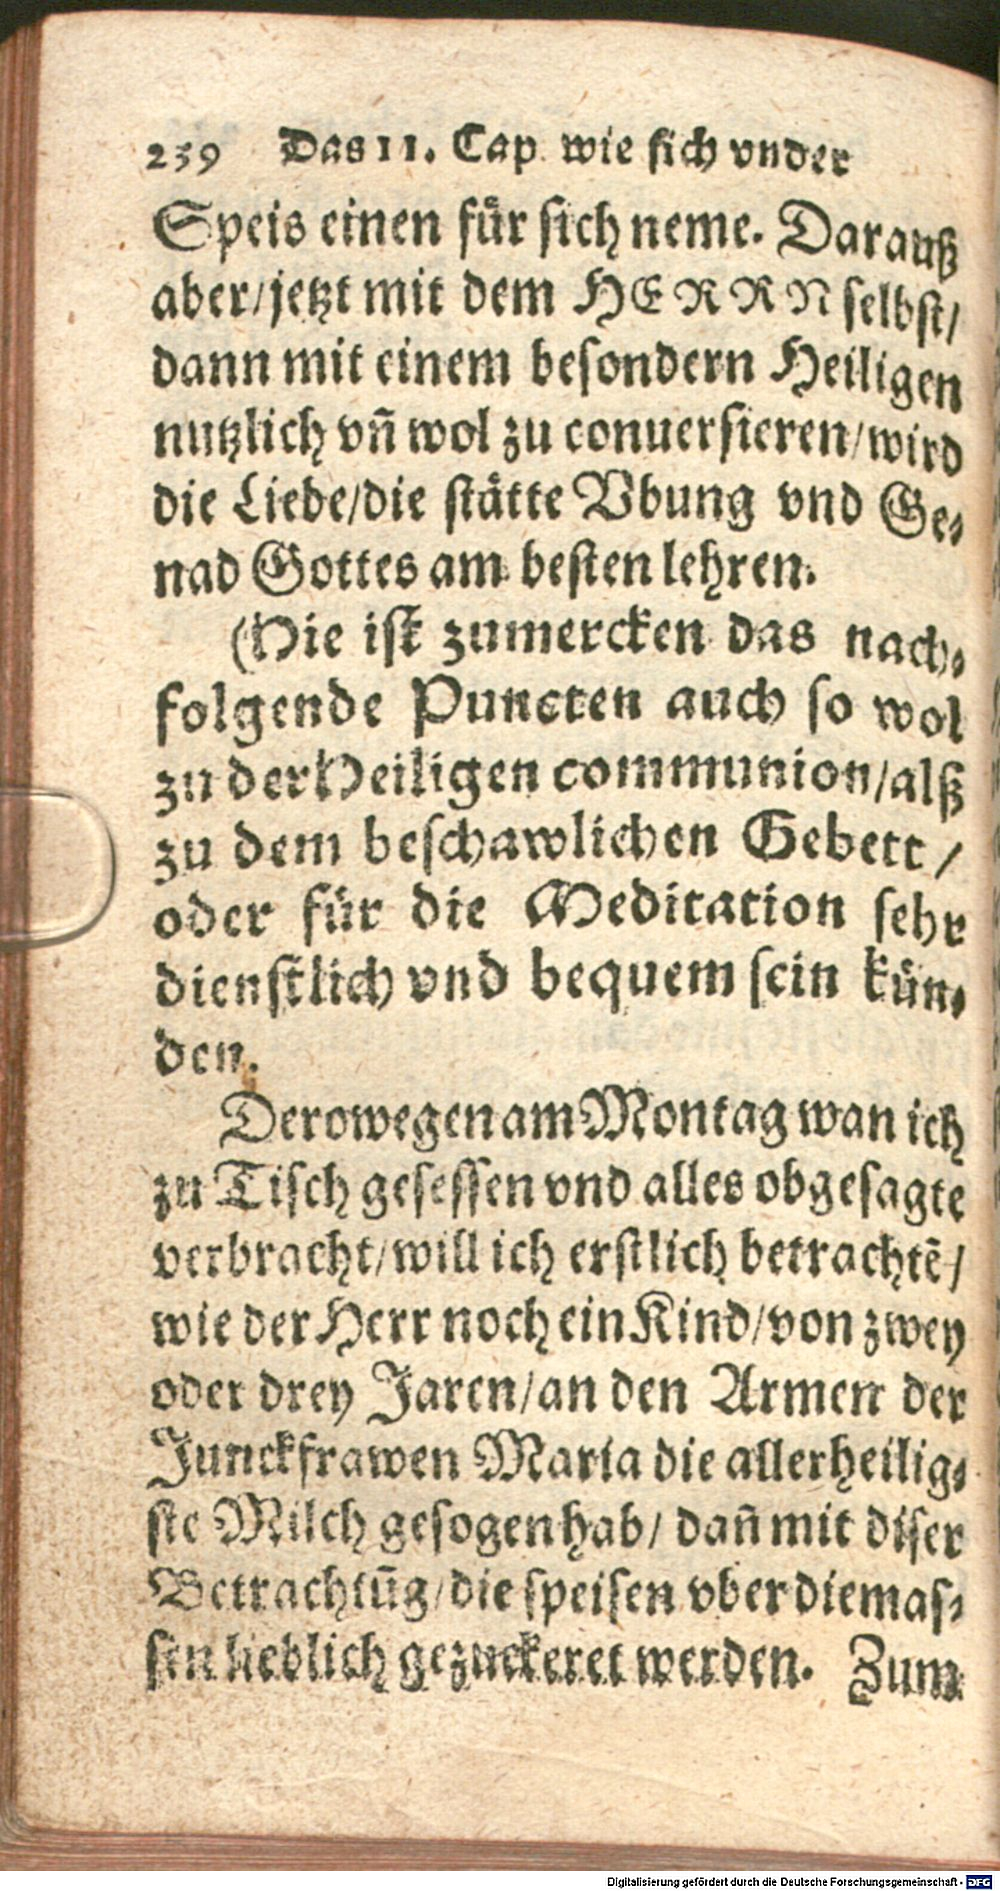 239 Das 11. Cap. wie sich vnder
Speis einen für sich neme. Darauß
aber/jetzt mit dem HERRN selbst/
dann mit einem besondern Heiligen
nutzlich vñ wol zu conuersieren/wird
die Liebe/die stätte Vbung vnd Ge-
nad Gottes am besten lehren.
(Hie ist zumercken das nach-
folgende Puncten auch so wol
zu der Heiligen communion/alß
zu dem beschawlichen Gebett/
oder für die Meditation sehr
dienstlich vnd bequem sein kün-
den.
Derowegen am Montag wan ich
zu Tisch gesessen vnd alles obgesagte
verbracht/will ich erstlich betrachtẽ/
wie der Herr noch ein Kind/von zwey
oder drey Jaren/an den Armen der
Junckfrawen Maria die allerheilig-
ste Milch gesogen hab/ dañ mit diser
Betrachtũg/die speisen vber die mas-
sen lieblich gezuckeret werden. Zum
Digitalisierung gefördert durch die Deutsche Forschungsgemeinschaft - DFG